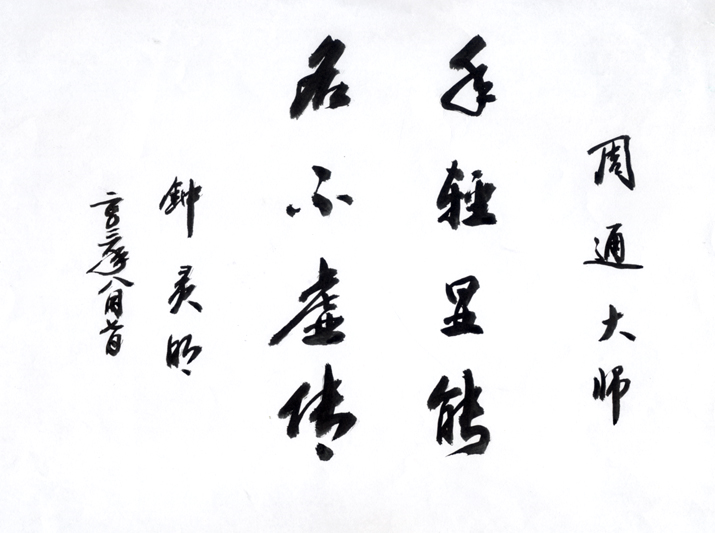 周通大师
年輕显能
名不虚传
钟灵明
二〇〇三年八月